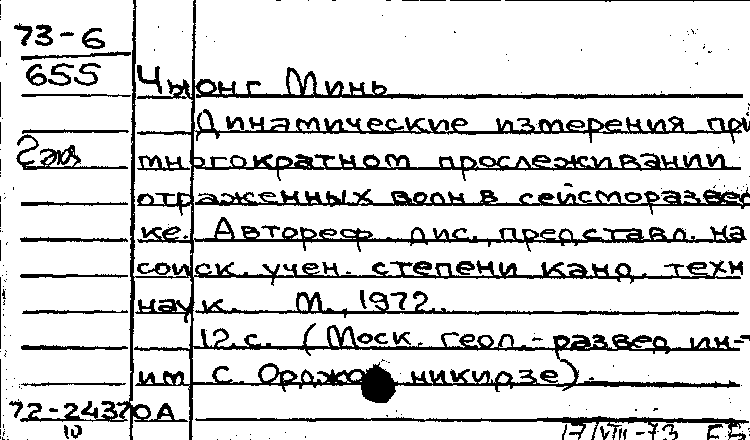 73-6
655
Чыонг Минь
Динамические измерения при
2 экз
многократном прослеживании
отраженных волн в сейсморазвед
ке. Автореф. дис., представл. на
соиск. учен. степени канд. техн
наук. М., 1972.
12 с. (Моск. геол.-развед. ин-т
им С. Орджоникидзе).
72-24370А
10
17/VIII-73 ББ